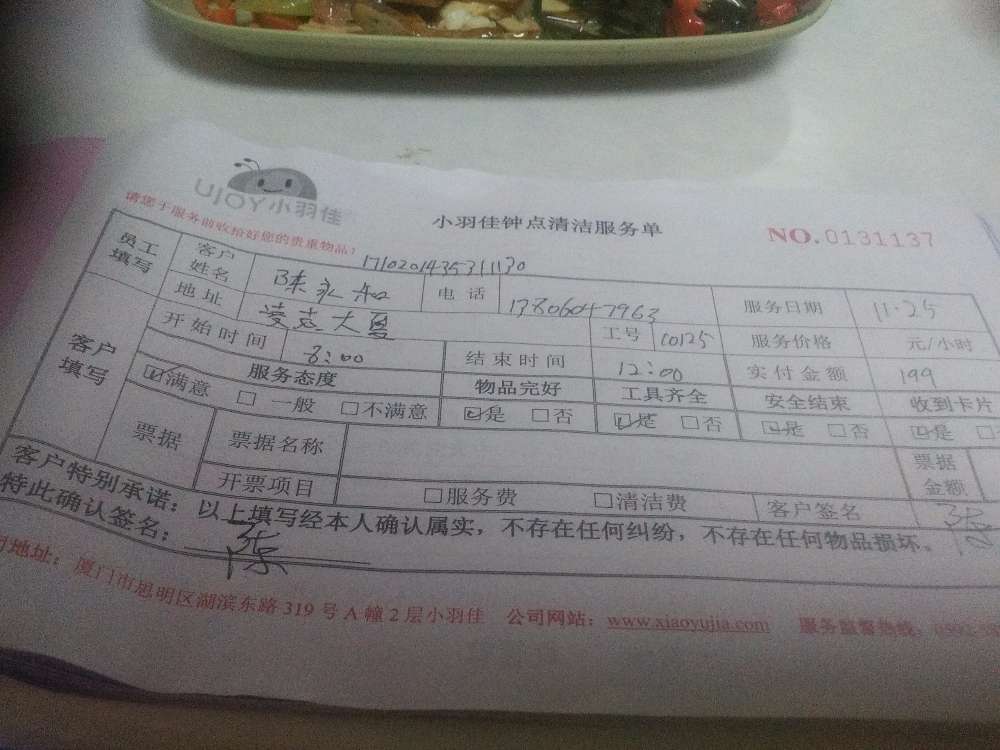 UJOY小羽佳
小羽佳钟点清洁服务单
NO.0131137
请您于服务前收拾好您的贵重物品!
171020143531130
员工填写 客户姓名 陈永和 电话 13806047963 服务日期 11.25
地址 凌志大厦 工号 10125 服务价格 元/小时
客户填写 开始时间 8:00 结束时间 12:00 实付金额 199
服务态度 物品完好 工具齐全 安全结束 收到卡片
☑满意 □一般 □不满意 ☑是 □否 ☑是 □否 ☑是 □否 ☑是 □
票据 票据名称 票据金额
开票项目 □服务费 □清洁费 客户签名 陈
客户特别承诺:以上填写经本人确认属实,不存在任何纠纷,不存在任何物品损坏。
特此确认签名: 陈
地址:厦门市思明区湖滨东路319号A幢2层小羽佳 公司网站:www.xiaoyujia.com 服务监督热线:0592